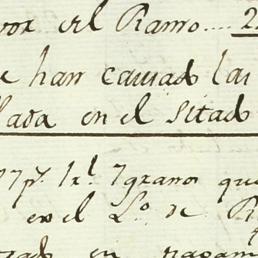 vor del Ramo.... 2
e han causado las
llada en el sitado
77p.s 1r.l 7granos que
en el L.o de R
en pagam